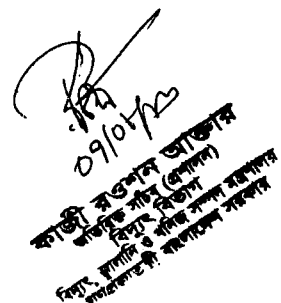 কাজী রওশন আক্তার
অতিরিক্ত সচিব (প্রশাসন)
বিদ্যুৎ বিভাগ
বিদ্যুৎ, জ্বালানি ও খনিজ সম্পদ মন্ত্রণালয়
গণপ্রজাতন্ত্রী বাংলাদেশ সরকার